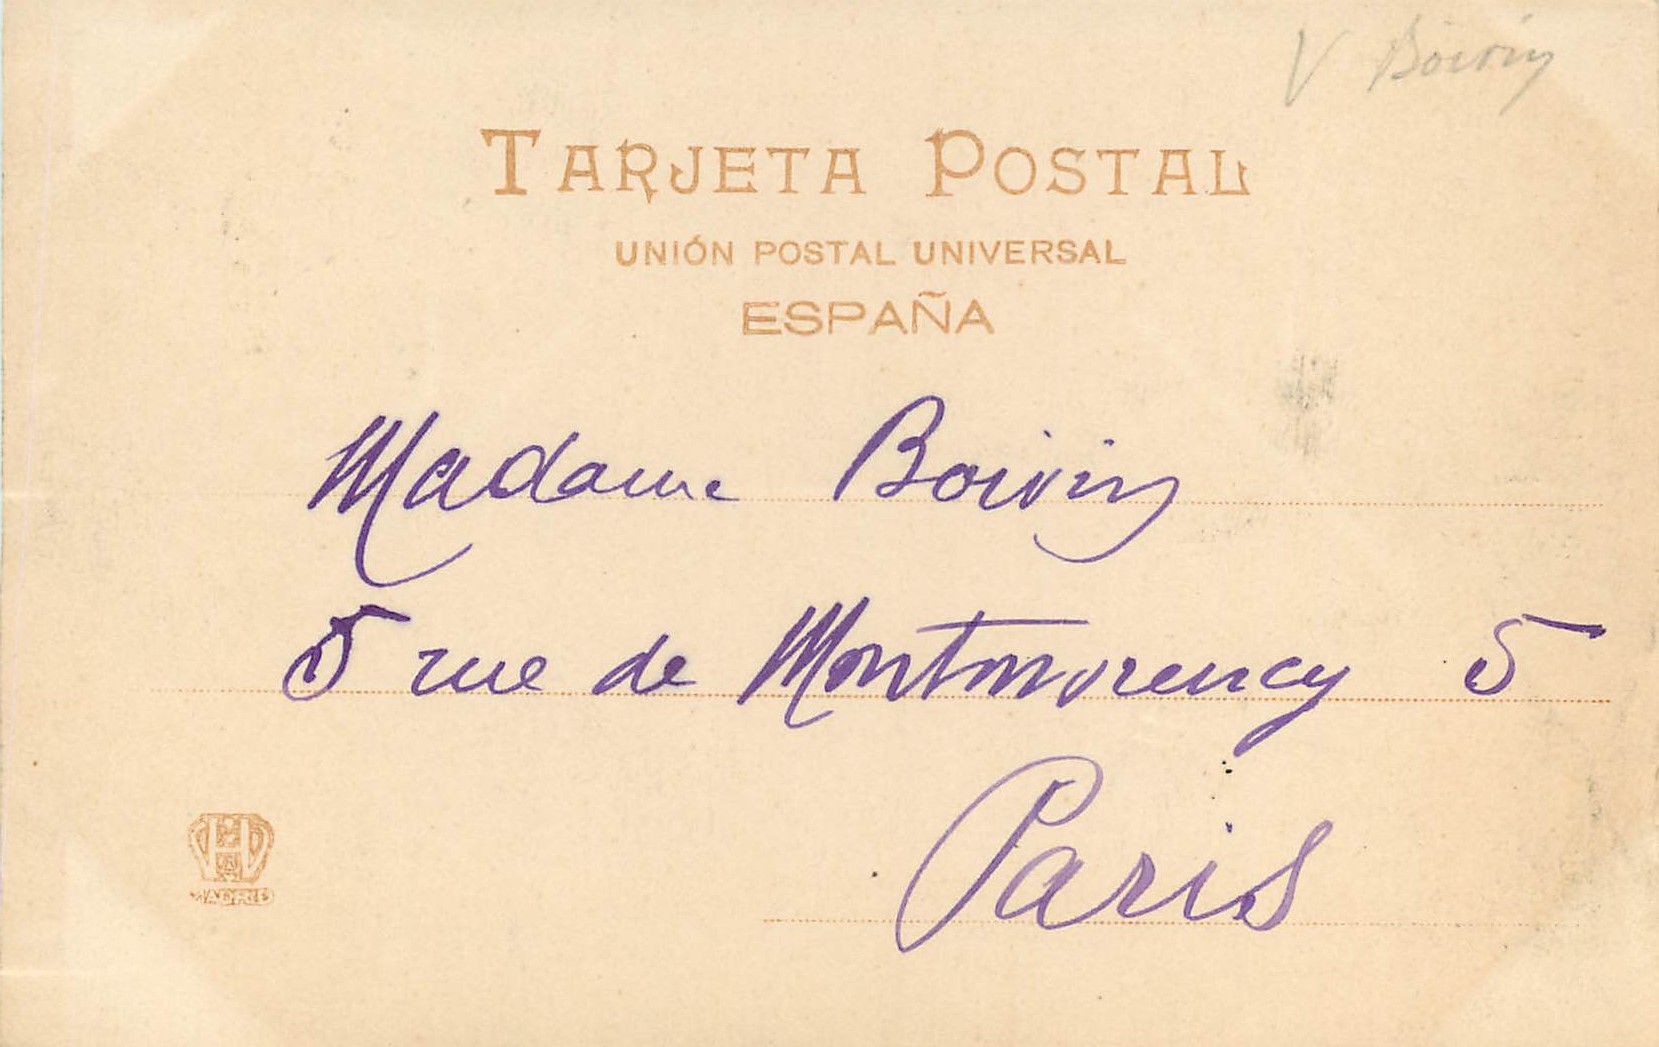 V Boivin
TARJETA POSTAL
UNIÓN POSTAL UNIVERSAL
ESPAÑA
Madame Boivin
5 rue de Montmorency 5
Paris
MADRID